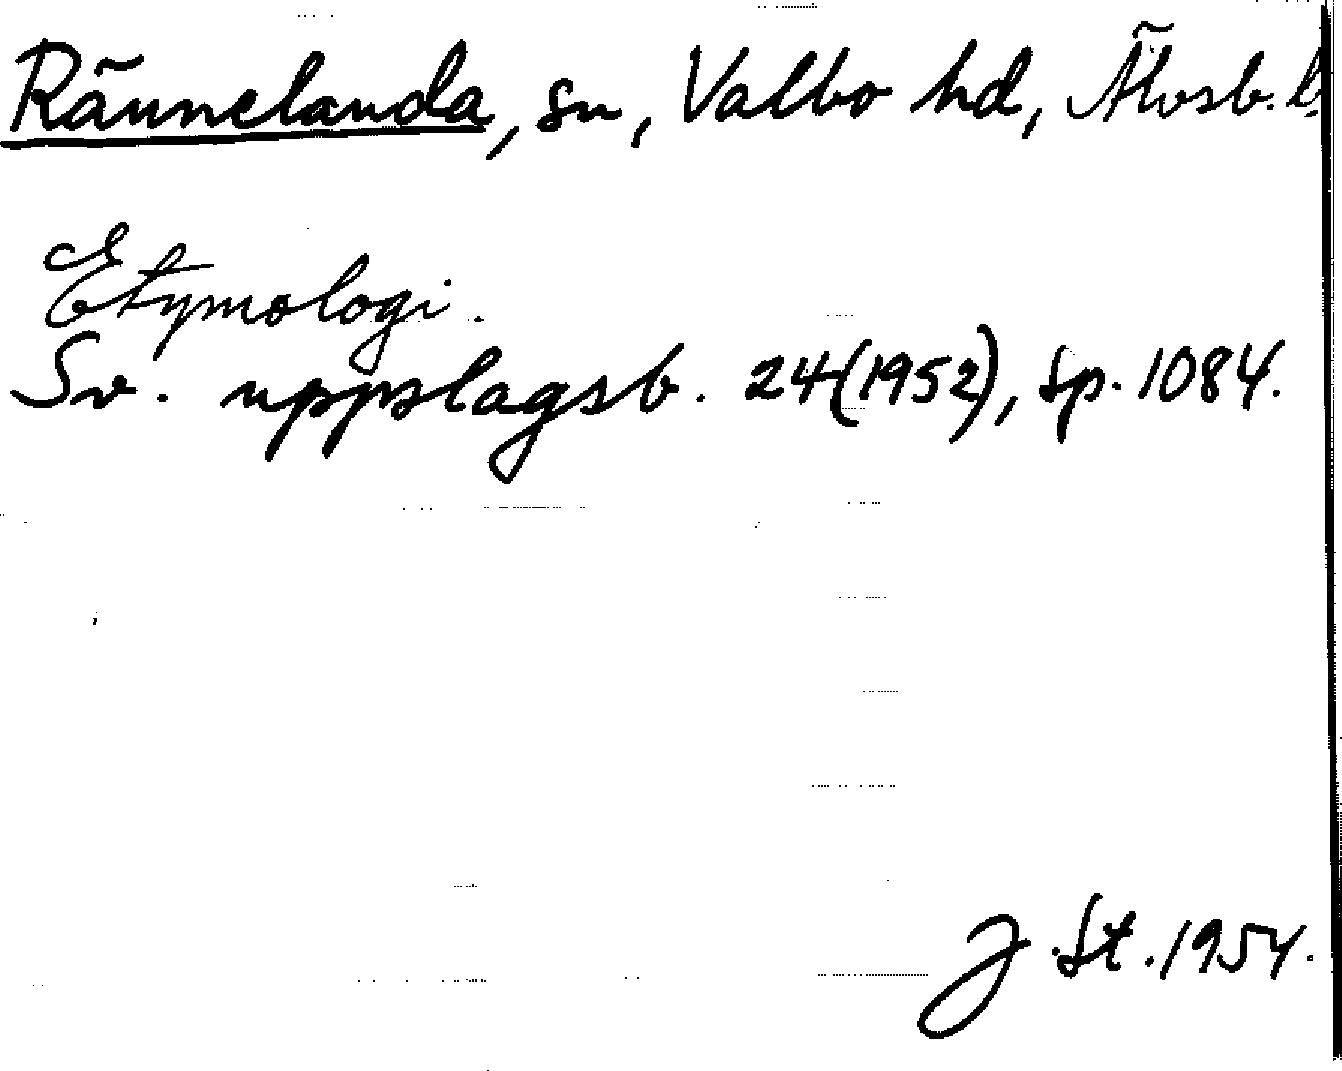 Rännelanda, sn, Valbo hd, Älvsb. l.
Etymologi.
Sv. uppslagsb. 24(1952), sp. 1084.
J St. 1954.